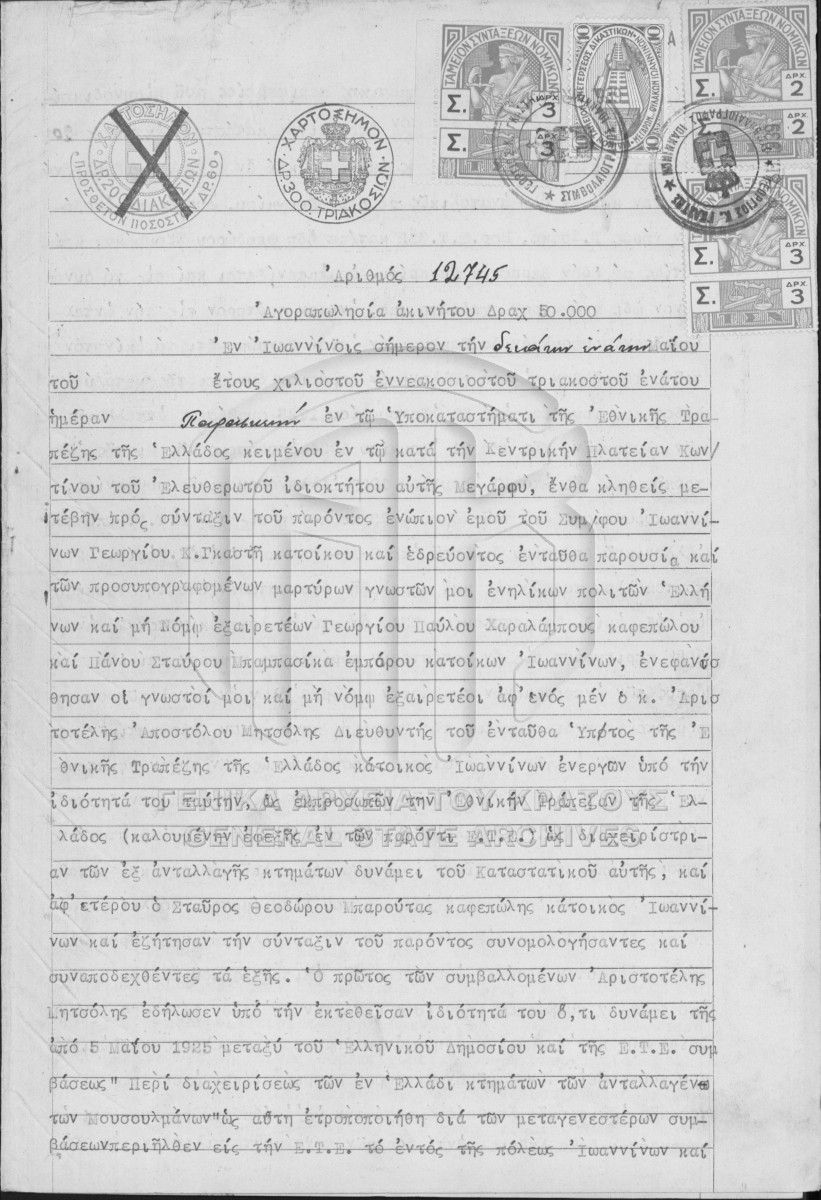 ΤΑΜΕΙΟΝ ΣΥΝΤΑΞΕΩΝ ΝΟΜΙΚΩΝ
Σ. ΔΡΧ. 3
ΔΡΧ. 3
10 10
ΤΑΜΕΙΟΝ ΣΥΝΤΑΞΕΩΝ ΝΟΜΙΚΩΝ
Σ. ΔΡΧ. 2
Σ. 2
ΝΟΜΙΚΩΝ
Σ. ΔΡΧ. 3
Σ. ΔΡΧ. 3
Α
ΧΑΡΤΟΣΗΜΟΝ
ΔΡ 200 ΔΙΑΚΟΣΙΩΝ
ΠΡΟΣΘΕΤΟΝ ΠΟΣΟΣΤΟΝ ΔΡ. 60
ΧΑΡΤΟΣΗΜΟΝ
ΔΡ 300 ΤΡΙΑΚΟΣΙΩΝ
ΣΥΜΒΟΛΑΙΟΓΡΑΦ
Ἀριθμός 12745
Ἀγοραπωλησία ἀκινήτου Δραχ 50.000
Ἐν Ἰωαννίνοις σήμερον τήν δεκάτην ἐνάτην Μαΐου
τοῦ ἔτους χιλιοστοῦ ἐννεακοσιοστοῦ τριακοστοῦ ἐνάτου
ἡμέραν Παρασκευήν ἐν τῷ Ὑποκαταστήματι τῆς Ἐθνικῆς Τρα
πέζης τῆς Ἑλλάδος κειμένου ἐν τῷ κατά τήν Κεντρικήν Πλατεῖαν Κων/
τίνου τοῦ Ἐλευθερωτοῦ ἰδιοκτήτου αὐτῆς Μεγάρῳ, ἔνθα κληθείς με-
τέβην πρός σύνταξιν τοῦ παρόντος ἐνώπιον ἐμοῦ τοῦ Συμ/φου Ἰωαννί-
νων Γεωργίου Κ.Γκαστῆ κατοίκου καί ἑδρεύοντος ἐνταῦθα παρουσίᾳ καί
τῶν προσυπογραφομένων μαρτύρων γνωστῶν μοι ἐνηλίκων πολιτῶν Ἑλλή
νων καί μή Νόμῳ ἐξαιρετέων Γεωργίου Παύλου Χαραλάμπους καφεπώλου
καί Πάνου Σταύρου Μπαμπασίκα ἐμπόρου κατοίκων Ἰωαννίνων, ἐνεφανίσ
θησαν οἱ γνωστοί μοι καί μή νόμῳ ἐξαιρετέοι ἀφ'ἑνός μέν ὁ κ. Ἀρισ
τοτέλης Ἀποστόλου Μητσόλης Διευθυντής τοῦ ἐνταῦθα Ὑπ/τος τῆς Ἐ
θνικῆς Τραπέζης τῆς Ἑλλάδος κάτοικος Ἰωαννίνων ἐνεργῶν ὑπό τήν
ἰδιότητά του ταύτην, ὡς ἐκπροσωπῶν τήν Ἐθνικήν Τράπεζαν τῆς Ἑλ-
ΓΕΝΙΚΑ ΑΡΧΕΙΑ ΤΟΥ ΚΡΑΤΟΥΣ
λάδος (καλουμένην ἐφεξῆς ἐν τῷ παρόντι Ε.Τ.Ε.) ὡς διαχειρίστρι-
GENERAL STATE ARCHIVES
αν τῶν ἐξ ἀνταλλαγῆς κτημάτων δυνάμει τοῦ Καταστατικοῦ αὐτῆς, καί
ἀφ'ετέρου ὁ Σταῦρος Θεοδώρου Μπαρούτας καφεπώλης κάτοικος Ἰωαννί-
νων καί ἐζήτησαν τήν σύνταξιν τοῦ παρόντος συνομολογήσαντες καί
συναποδεχθέντες τά ἑξῆς. Ὁ πρῶτος τῶν συμβαλλομένων Ἀριστοτέλης
Μητσόλης ἐδήλωσεν ὑπό τήν ἐκτεθεῖσαν ἰδιότητά του ὅ,τι δυνάμει τῆς
ἀπό 5 Μαΐου 1925 μεταξύ τοῦ Ἑλληνικοῦ Δημοσίου καί τῆς Ε.Τ.Ε. συμ
βάσεως" Περί διαχειρίσεως τῶν ἐν Ἑλλάδι κτημάτων τῶν ἀνταλλαγέν-
των Μουσουλμάνων"ὡς αὕτη ἐτροποποιήθη διά τῶν μεταγενεστέρων συμ-
βάσεωνπεριῆλθεν εἰς τήν Ε.Τ.Ε. τό ἐντός τῆς πόλεως Ἰωαννίνων καί